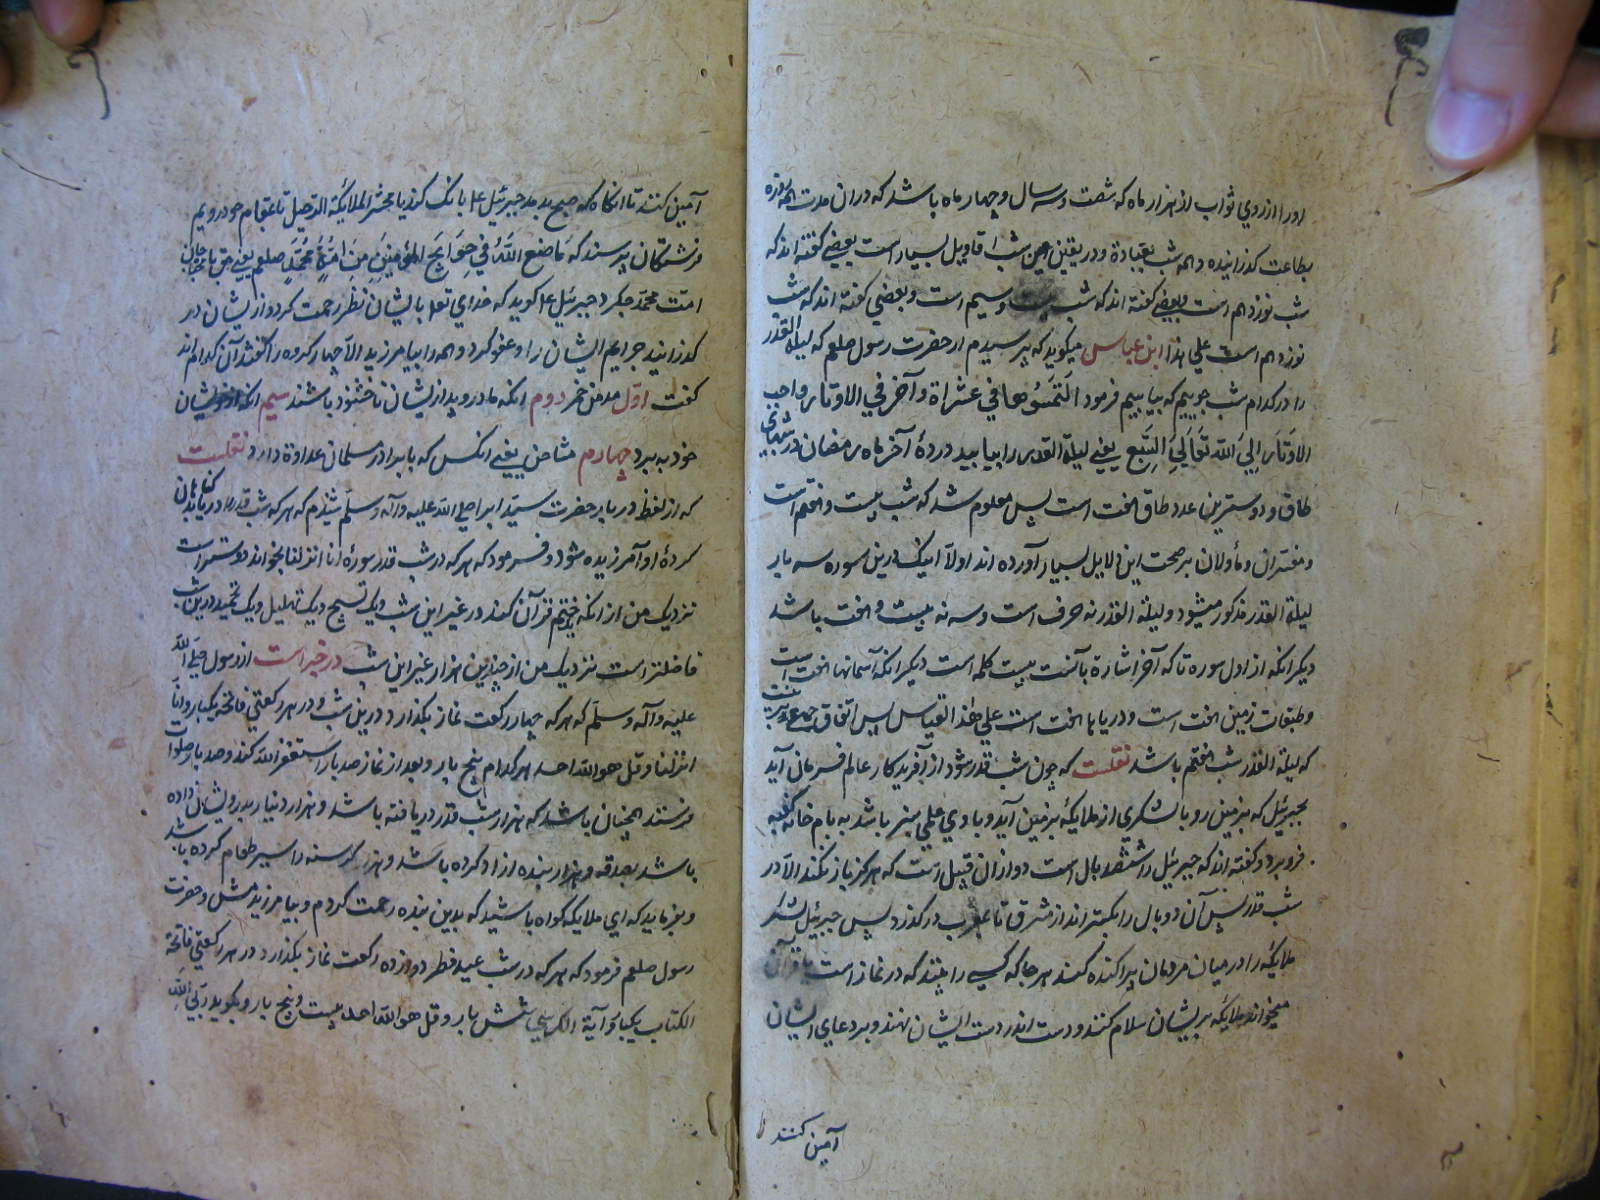 اورا ازروي ثواب از هزار ماه كه شصت وسه سال وچهار ماه باشد كه دران مدت همه روزه
بطاعت كذرانيده وهمه شب بعبادة ودر يقين اين شب اقاويل بسيار است بعضے كفته اند كه
شب نوزدهم است وبعضے كفته اند كه شب بيست وسيم است وبعضي كفته اند كه شب
نوزدهم است علي هذا ابن عباس ميكويد كه پرسيدم از حضرت رسول صلعم كه ليلة القدر
را در كدام شب جوييم كه بيابيم فرمود التمسوها في عشراة وآخر في الاوتار واحب
الاوتار الي الله تعالي السبع يعنے ليلة القدر را بيابيد در دۀ آخر ماه رمضان در شبهاي
طاق و دوسترين عدد طاق هفت است پس معلوم شد كه شب بيست وهفتم است
ومفسران ومأولان بر صحت اين دلايل بسيار آورده اند اولا آنك درين سوره سه بار
ليلة القدر مذكور ميشود وليلة القدر نه حرف است وسه نه بيست وهفت باشد
ديكر انكه از اول سوره تا كه آخر اشارة بآنست بيست كلمه است ديكر انكه آسمانها هفت است
وطبقات زمين هفت است ودرياها هفت است علي هذا القياس پس اتفاق جمع
كه ليلة القدر شب هفتم باشد نقلست كه چون شب قدر شود از آفريدكار عالم فرمان آيد
بجبرئيل كه بزمين رو با لشكري از ملايكه بزمين آيد و با وي علمي سبز باشد به بام خانه كعبه
فرو برد وكفته اند كه جبرئيل را ششصد بال است دو ازان قبيل است كه هركز باز نكند الا در
شب قدر پس آن دو بال را بكستراند از مشرق تا مغرب در كذرد پس جبرئيل لشكر
ملايكه را در ميان مردمان پراكنده كنند هر جا كه كسے را بينند كه در نماز است يا قرآن
ميخواند ملايكه بر ايشان سلام كنند ودست اندر دست ايشان نهند وبر دعاي ايشان
آمين كنند
آمين كنند تا انكاه كه صبح بدمد جبرئيل عل بانك كند يا معشر الملايكة الرحيل تا بمقام خود رويم
فرشتكان پرسند كه ما صنع الله في حوايج المؤمنين من امة محمد صلعم يعني حق با
امت محمد چكرد جبرئيل عل كويد كه خداي تعل با ايشان نظر رحمت كرد واز ايشان در
كذرانيد جرايم ايشان را وعفو كرد وهمه را بيامرزيد الا چهار كروه را كفتند آن كدام اند
كفت اول مدمن خمر دوم انكه مادر وپدر از ايشان ناخشنود باشند سيم انكه از خويشان
خود ببرد چهارم مشاحن يعنے انكس كه با برادر مسلمان عداوة دارد نقلست
كه از لفظ درربار حضرت سيد ابرار صلي الله عليه وآله وسلم شنيدم كه هر كه شب قدر را دريابد كناهان
كردۀ او آمرزيده شود وفرمود كه هر كه در شب قدر سورۀ انا انزلنا بخواند دوستر است
نزديك من از انكه ختم قرآن كند در غير اين شب ويك تسبيح ويك تهليل ويك تحميد درين شب
فاضلتر است نزديك من از چندين هزار غير اين شب در خبر است از رسول صلي الله
عليه وآله وسلم كه هر كه چهار ركعت نماز بكذارد درين شب و در هر ركعتي فاتحه يكبار وانا
انزلنا وقل هو الله احد هر كدام پنج بار وبعد از نماز صد بار استغفر الله كند وصد بار صلوات
فرستد همچنان باشد كه هزار شب قدر دريافته باشد وهزار دينار بدرويشان داده
باشد بصدقه وهزار بنده ازاد كرده باشد وهزار كرسنه را سير طعام كرده باشد
وبفرمايد كه اي ملايكه كواه باشيد كه بدين بنده رحمت كردم وبيامرزيدمش وحضرت
رسول صلعم فرمود كه هر كه در شب عيد فطر دوازده ركعت نماز بكذارد در هر ركعتي فاتحة
الكتاب يكبار وآية الكرسي شش بار وقل هو الله احد بيست وپنج بار وبكويد ربي الله